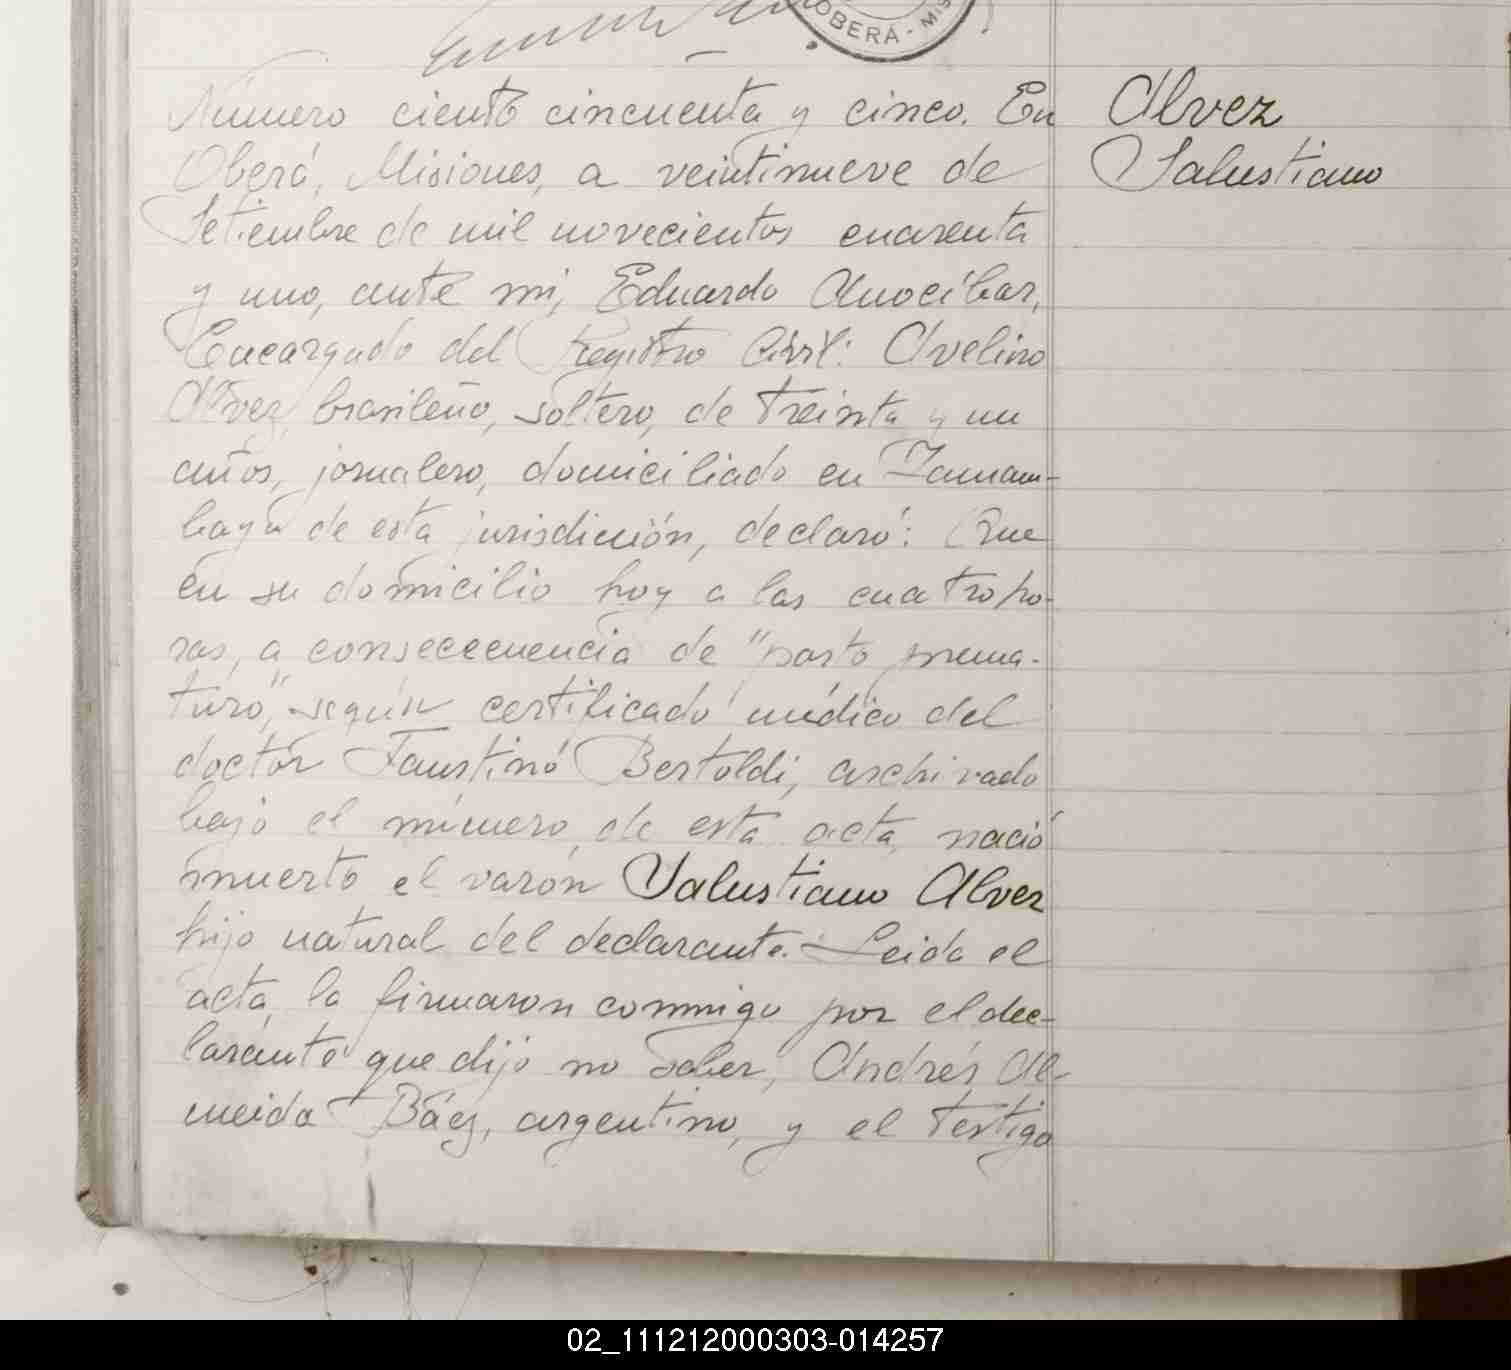 OBERÁ - MIS
Número ciento cincuenta y cinco. En
Oberá, Misiones, a veintinueve de
Setiembre de mil novecientos cuarenta
y uno, ante mi, Eduardo Anocíbar,
Encargado del Registro Civil: Avelino
Alvez, brasileño, soltero, de treinta y un
años, jornalero, domiciliado en Tamam-
bayú de esta jurisdicción, declaró: Que
en su domicilio hoy a las cuatro ho-
ras, a consececuencia de "parto prema-
turo", según certificado médico del
doctor Faustino Bertoldi, archivado
bajo el número de esta acta, nació
muerto el varón Salustiano Alvez
hijo natural del declarante. Leida el
acta, la firmaron conmigo por el dec-
larante que dijo no saber, Andrés Al-
meida Báez, argentino, y el testigo
Alvez
Salustiano
02_111212000303-014257